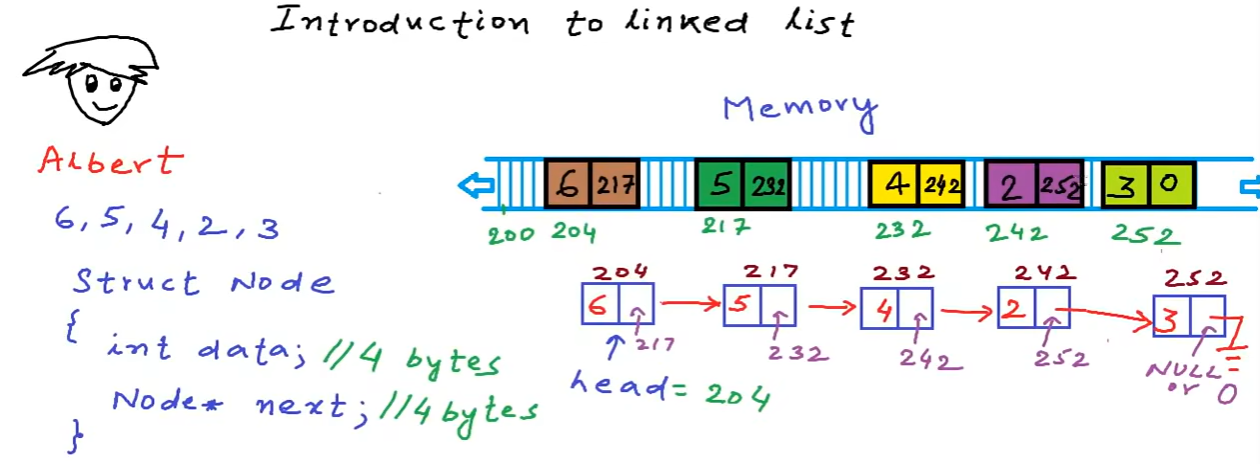 Introduction to linked list
Memory
Albert
6, 5, 4, 2, 3
Struct Node
{
int data; //4 bytes
Node* next; //4 bytes
}
6 217 5 232 4 242 2 252 3 0
200 204 217 232 242 252
204 217 232 242 252
6 5 4 2 3
217 232 242 252 NULL
or 0
head = 204